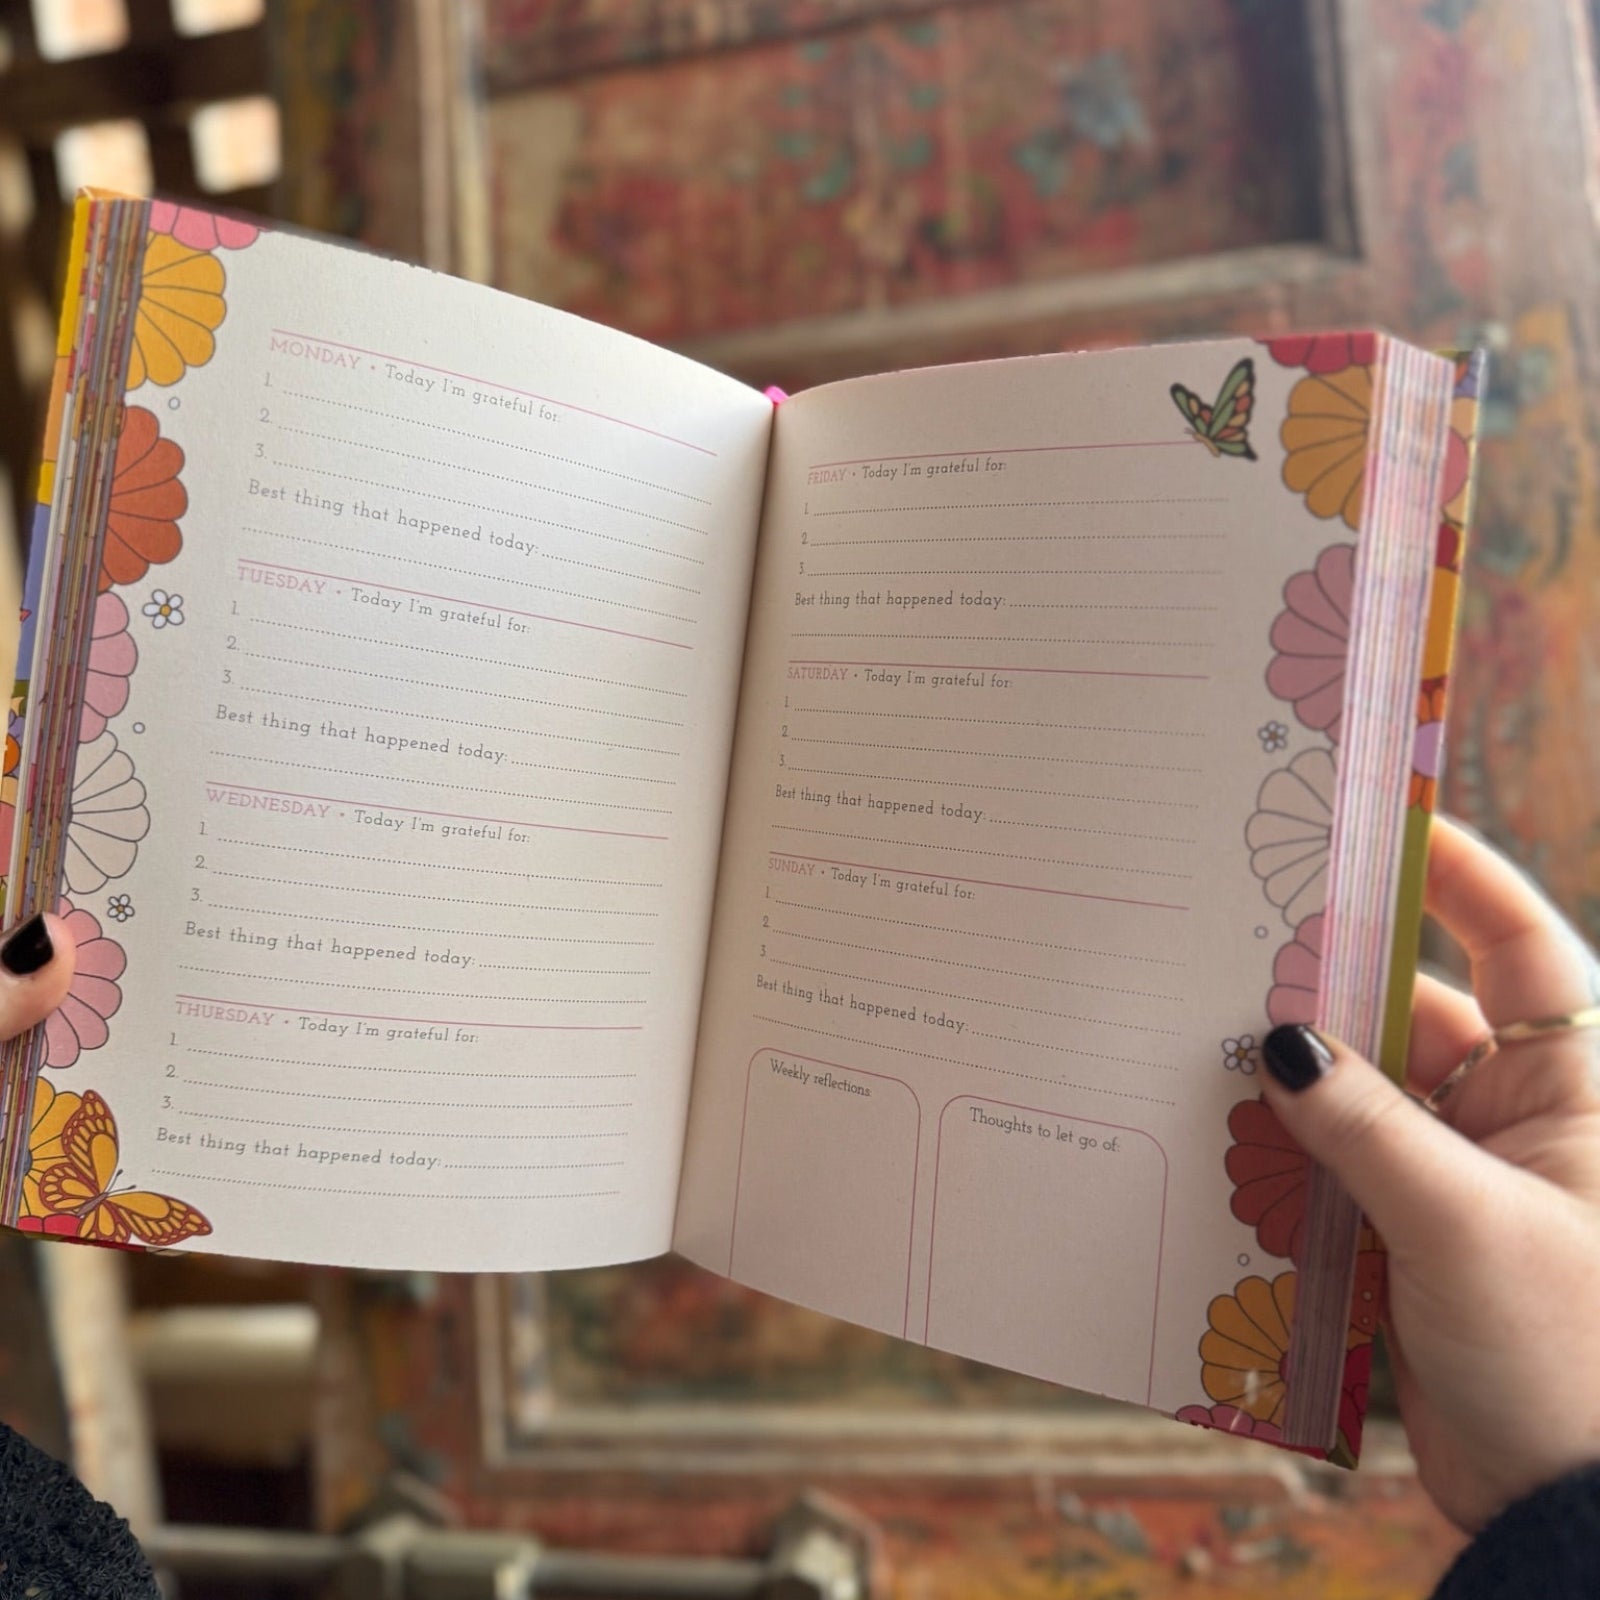 MONDAY • Today I'm grateful for:
1.
2.
3.
Best thing that happened today:
TUESDAY • Today I'm grateful for:
1.
2.
3.
Best thing that happened today:
WEDNESDAY • Today I'm grateful for:
1.
2.
3.
Best thing that happened today:
THURSDAY • Today I'm grateful for:
1.
2.
3.
Best thing that happened today:
FRIDAY • Today I'm grateful for:
1.
2.
3.
Best thing that happened today:
SATURDAY • Today I'm grateful for:
1.
2.
3.
Best thing that happened today:
SUNDAY • Today I'm grateful for:
1.
2.
3.
Best thing that happened today:
Weekly reflections:
Thoughts to let go of: